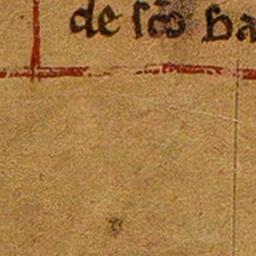 de sc̄o ba